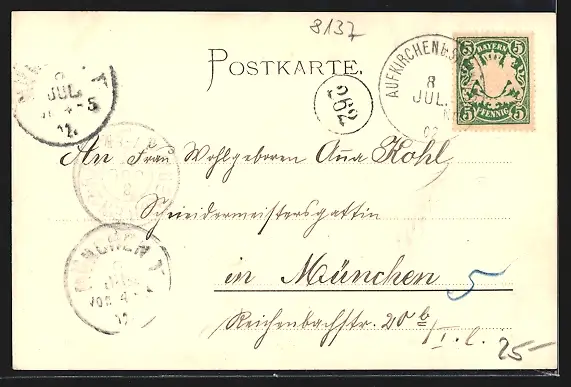 8137
POSTKARTE.
AUFKIRCHEN
8
JUL.
02
BAYERN
5 5
5 5
PFENNIG
262
JUL.
An Frau Wohlgeboren Anna Kohl
Schneidermeistersgattin
in München
5
Reichenbachstr. 20 b/I. l.
25-
MÜNCHEN